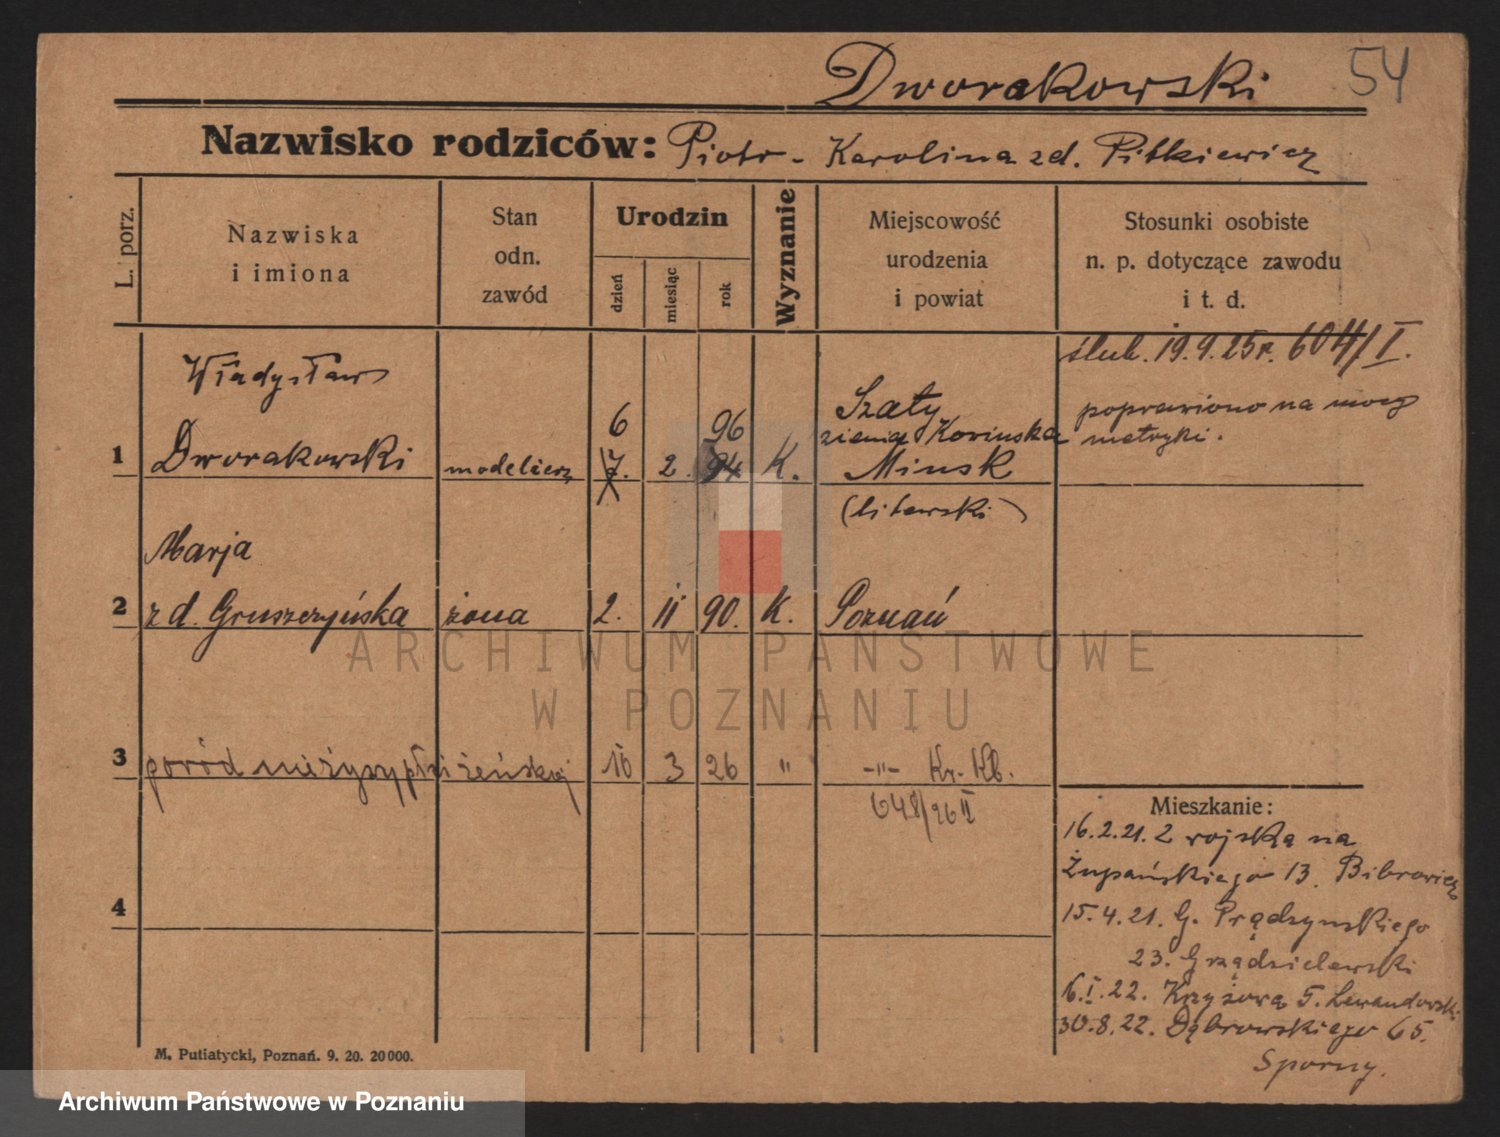 Dworakowski
54
Nazwisko rodziców: Piotr - Karolina zd. Pitkiewicz
L. porz.
Nazwiska
i imiona
Stan
odn.
zawód
Urodzin
dzień
miesiąc
rok
Wyznanie
Miejscowość
urodzenia
i powiat
Stosunki osobiste
n. p. dotyczące zawodu
i t. d.
ślub. 19.9.25r. 604/I.
poprawiono na mocy
metryki.
1
Władysław
Dworakowski
modelierz
6
7.
2.
96
94
K.
Szaty
ziemia Kowinska
Minsk
(litewski)
2
Marja
z d. Gruszczyńska
żona
2.
11
90.
K.
Poznań
ARCHIWUM PAŃSTWOWE
W POZNANIU
3
poród nieżywy płci żeńskiej
16
3
26
"
-"- Kr. Kb.
648/26 II
4
Mieszkanie:
16.2.21. Z wojska na
Żupańskiego 13. Bibrowicz
15.4.21. G. Prądzynskiego
23. Grządzielewski
16.I.22. Krzyżowa 5. Lewandowski
30.8.22. Dąbrowskiego 65.
Sporny.
M. Putiatycki, Poznań. 9. 20. 20 000.
Archiwum Państwowe w Poznaniu